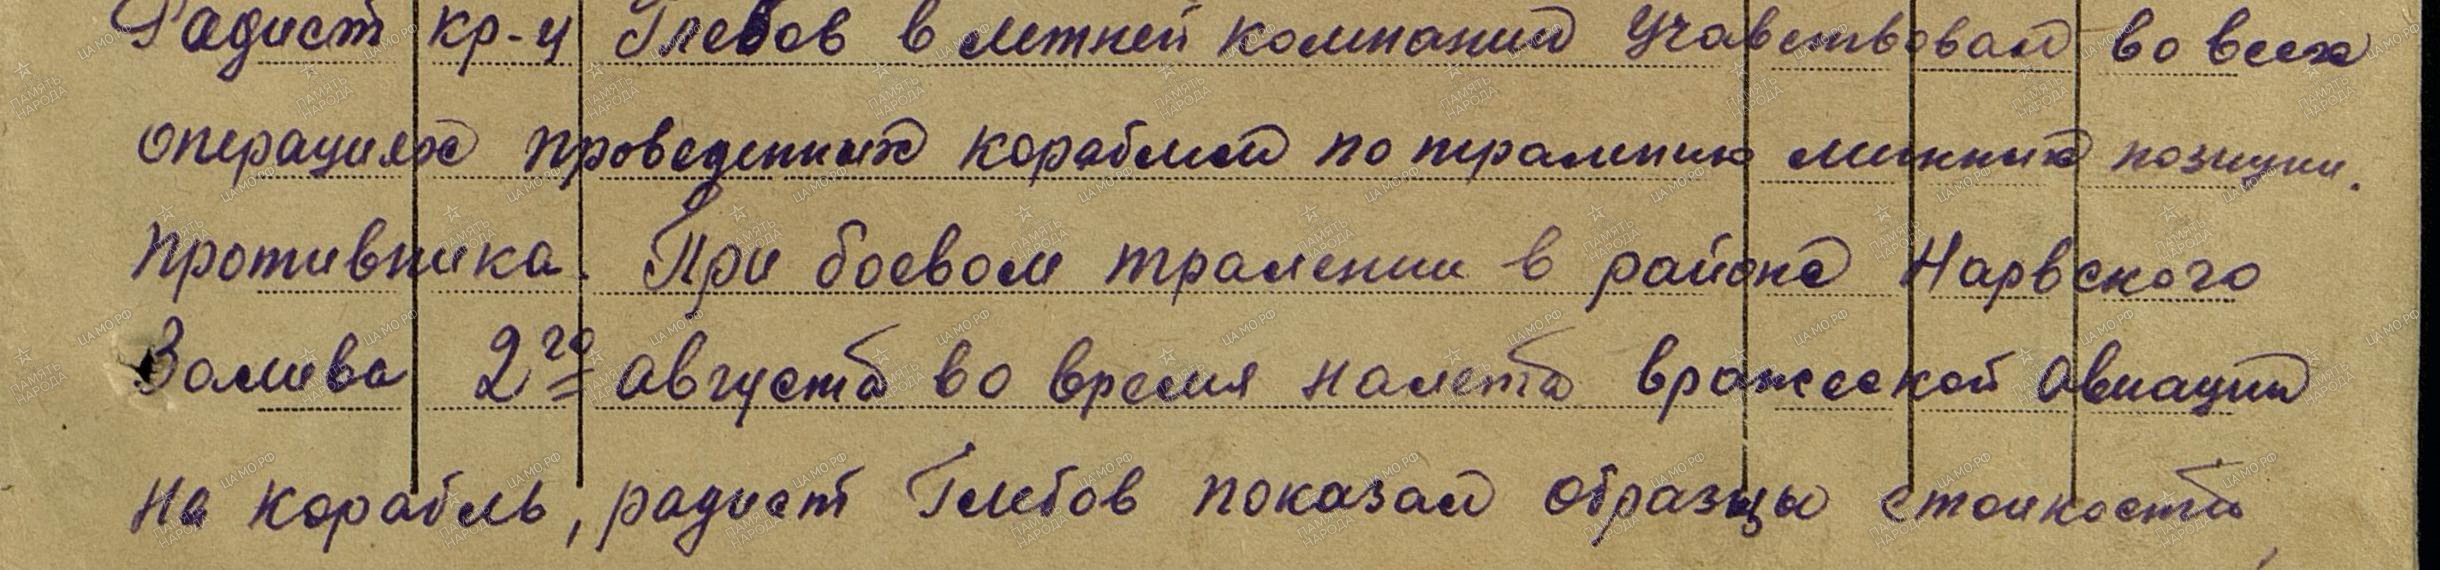 Радист кр-ц Глебов в летней компании учавствовал во всех
операциях проведенных кораблем по тралению минных позиции.
противника. При боевом тралении в районе Нарвского
Залива 2го августа во время налета вражеской авиации
на корабль, радист Глебов показал образцы стойкости,